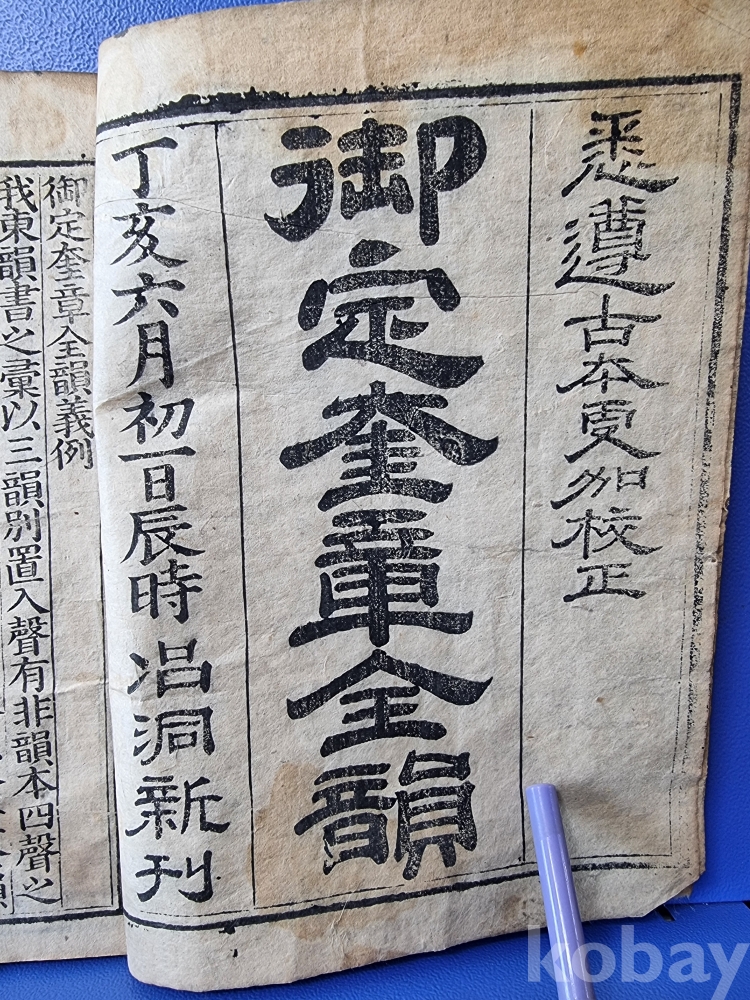 悉遵古本更加校正
御定奎章全韻
丁亥六月初一日辰時冶洞新刊
御定奎章全韻義例
我東韻書之彙以三韻別置入聲有非韻本四聲之
kobay